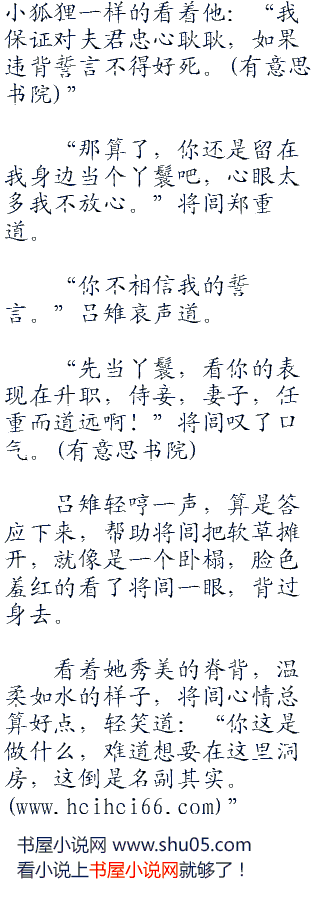 小狐狸一样的看着他：“我
保证对夫君忠心耿耿，如果
违背誓言不得好死。(有意思
书院)”
“那算了，你还是留在
我身边当个丫鬟吧，心眼太
多我不放心。”将闾郑重
道。
“你不相信我的誓
言。”吕雉哀声道。
“先当丫鬟，看你的表
现在升职，侍妾，妻子，任
重而道远啊！”将闾叹了口
气。(有意思书院)
吕雉轻哼一声，算是答
应下来，帮助将闾把软草摊
开，就像是一个卧榻，脸色
羞红的看了将闾一眼，背过
身去。
看着她秀美的脊背，温
柔如水的样子，将闾心情总
算好点，轻笑道：“你这是
做什么，难道想要在这里洞
房，这倒是名副其实。
(www.hcihci66.com)”
书屋小说网 www.shu05.com
看小说上书屋小说网就够了！